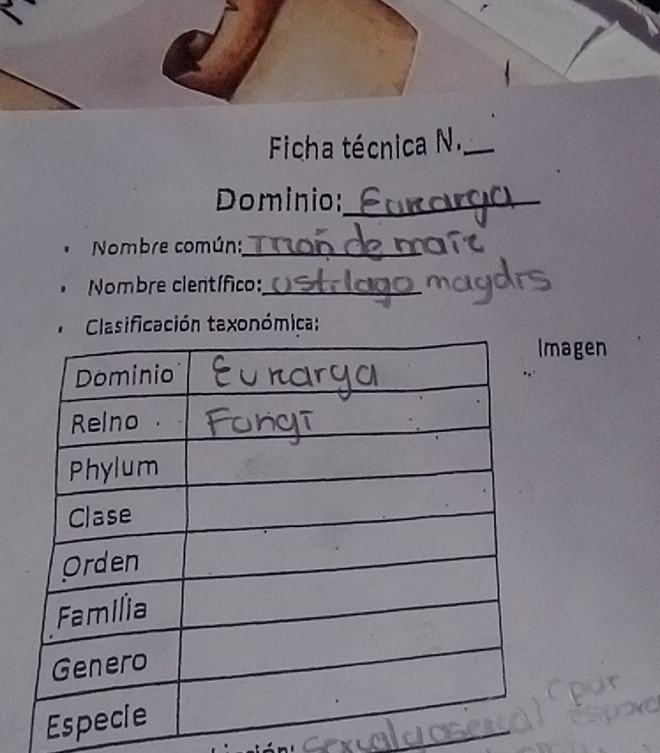 Ficha técnica N.__
Dominio: Eukarya
Nombre común: de maíz
Nombre científico: Ustilago maydis
Clasificación taxonómica:
Imagen
Dominio Eukarya
Reino Fungi
Phylum
Clase
Orden
Familia
Genero
Especie
(por
sexual y asexual esporas